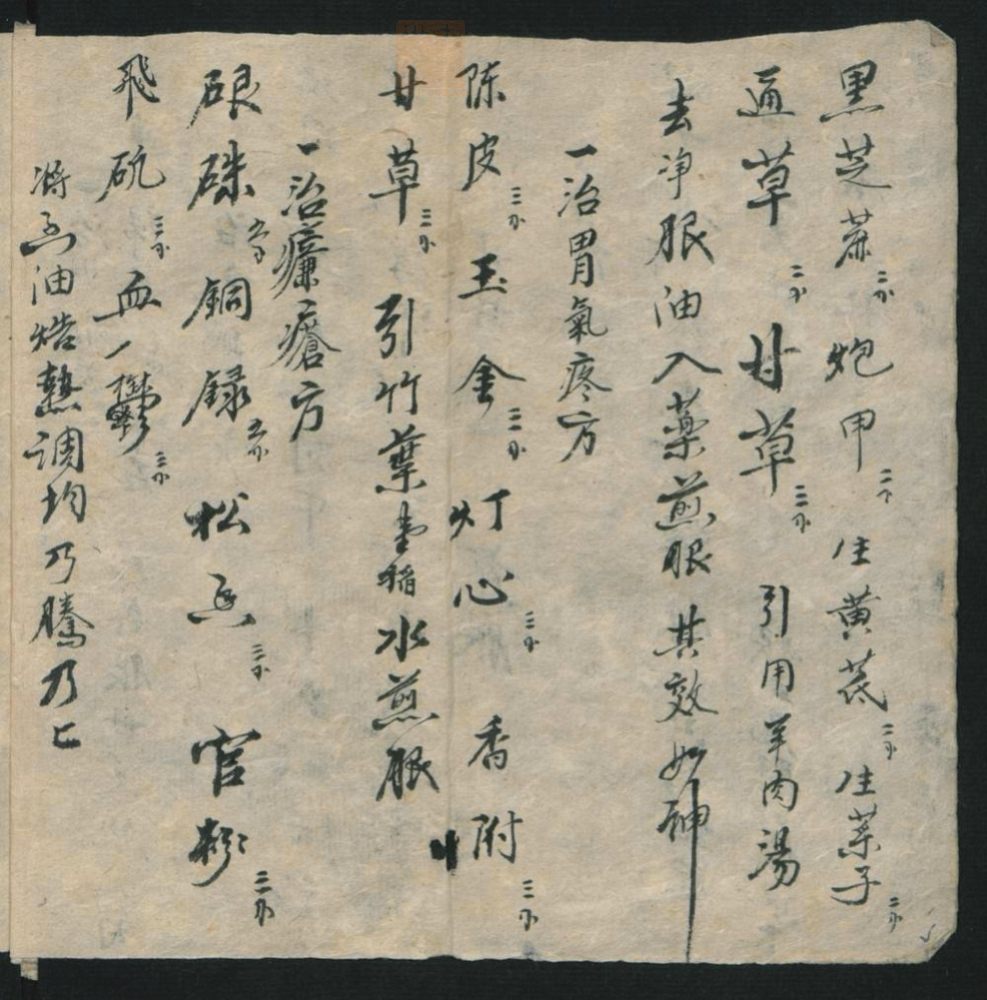 黑芝蔴 三分 炮甲 二分 生黄芪 二分 生菜子 二分
通草 二分 甘草 三分 引用羊肉湯
去净服油入藥煎服其效如神
一治胃氣疼方
陈皮 三分 玉金 三分 灯心 三分 香附 三分
甘草 三分 引竹葉 水煎服
一治臁瘡方
硃 五分 銅録 五分 松香 三分 官粉 二分
飛矾 三分 血 三分
将香油焅熱調均乃騰乃上